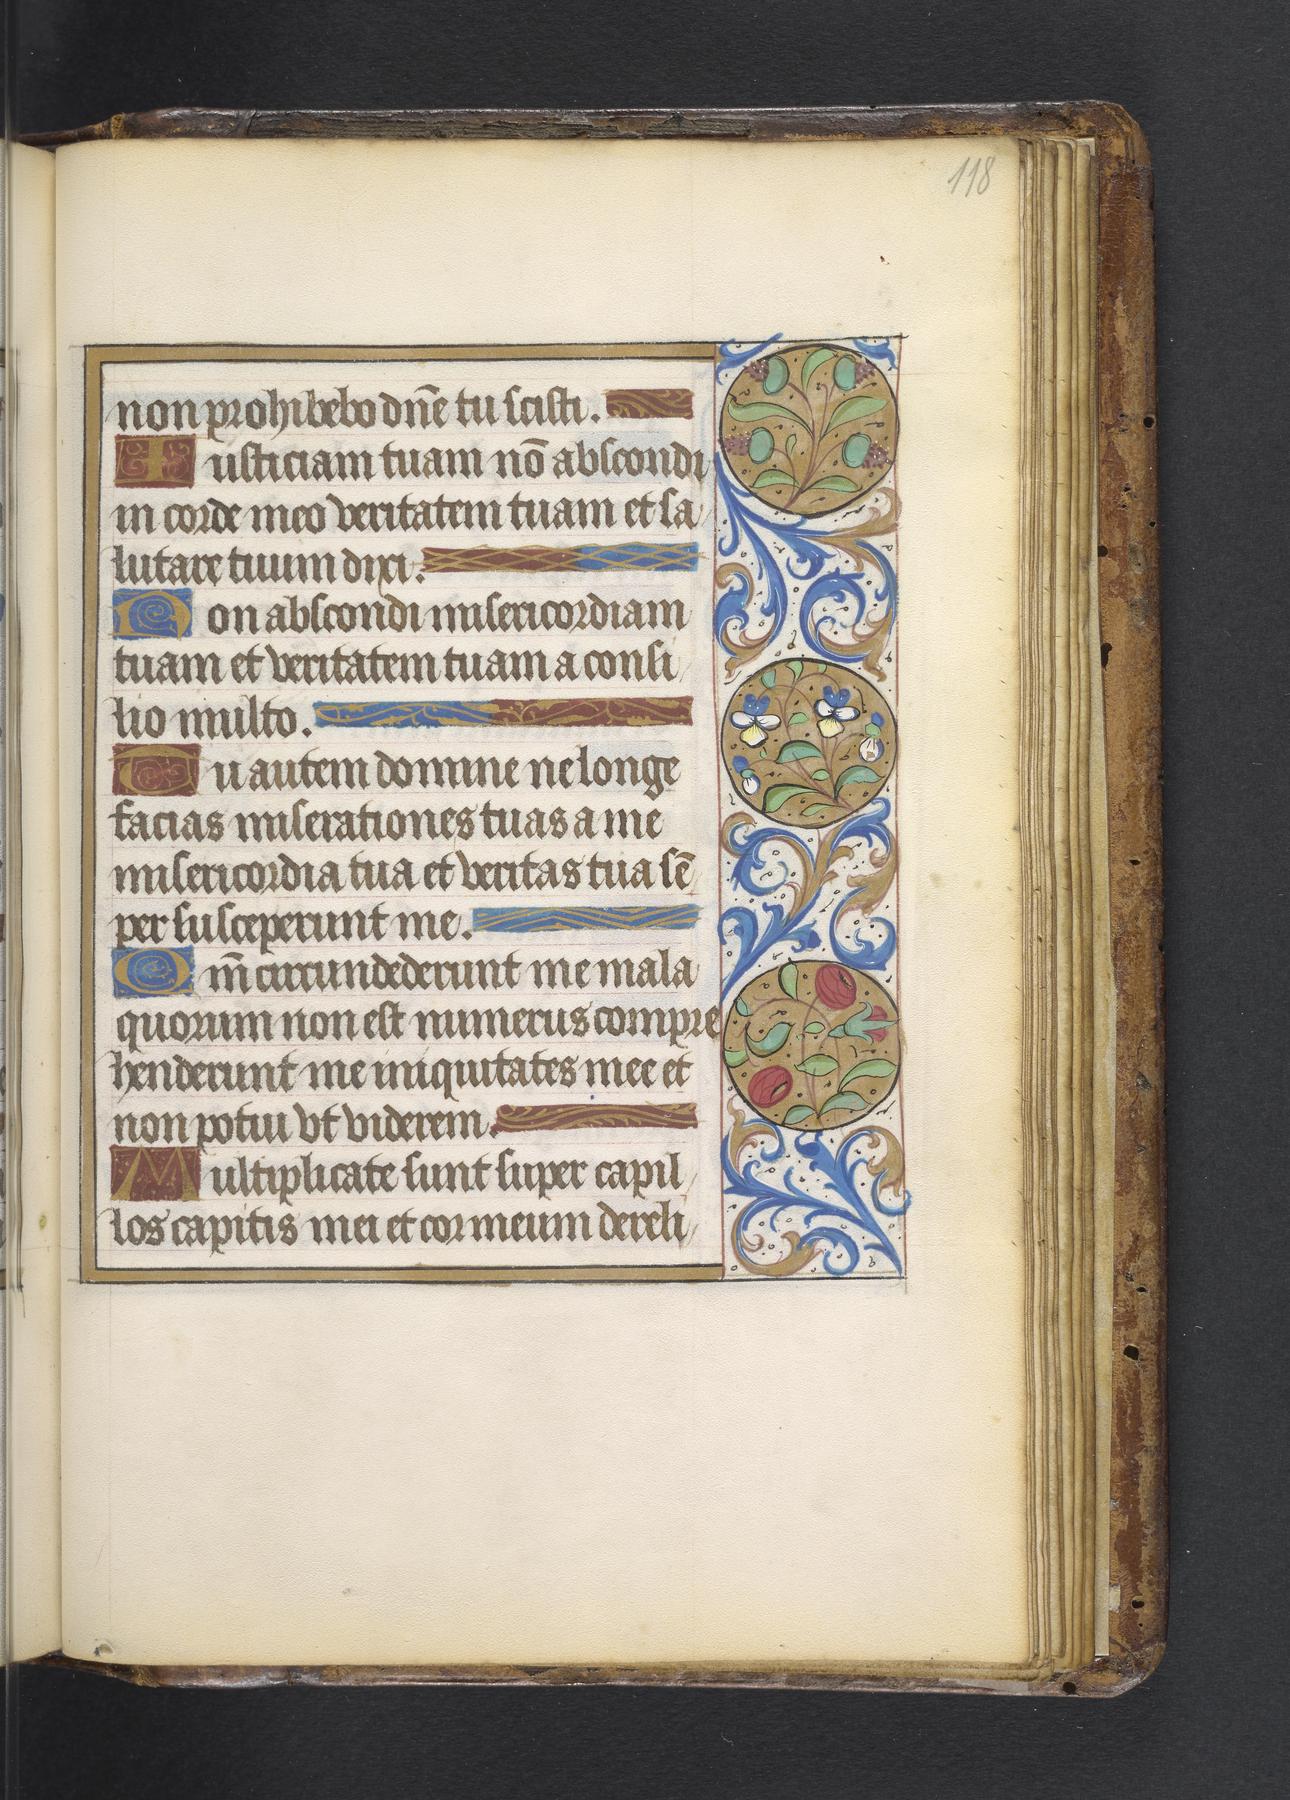 118
non prohibebo dñe tu scisti.
Iusticiam tuam nō abscondi
in corde meo veritatem tuam et sa
lutare tuum dixi.
Non abscondi misericordiam
tuam et veritatem tuam a consi
lio multo.
Tu autem domine ne longe
facias miserationes tuas a me
misericordia tua et veritas tua sē
per susceperunt me.
Qm̄ circundederunt me mala
quorum non est numerus compre
henderunt me iniquitates mee et
non potui vt viderem.
Multiplicate sunt super capil
los capitis mei et cor meum dereli